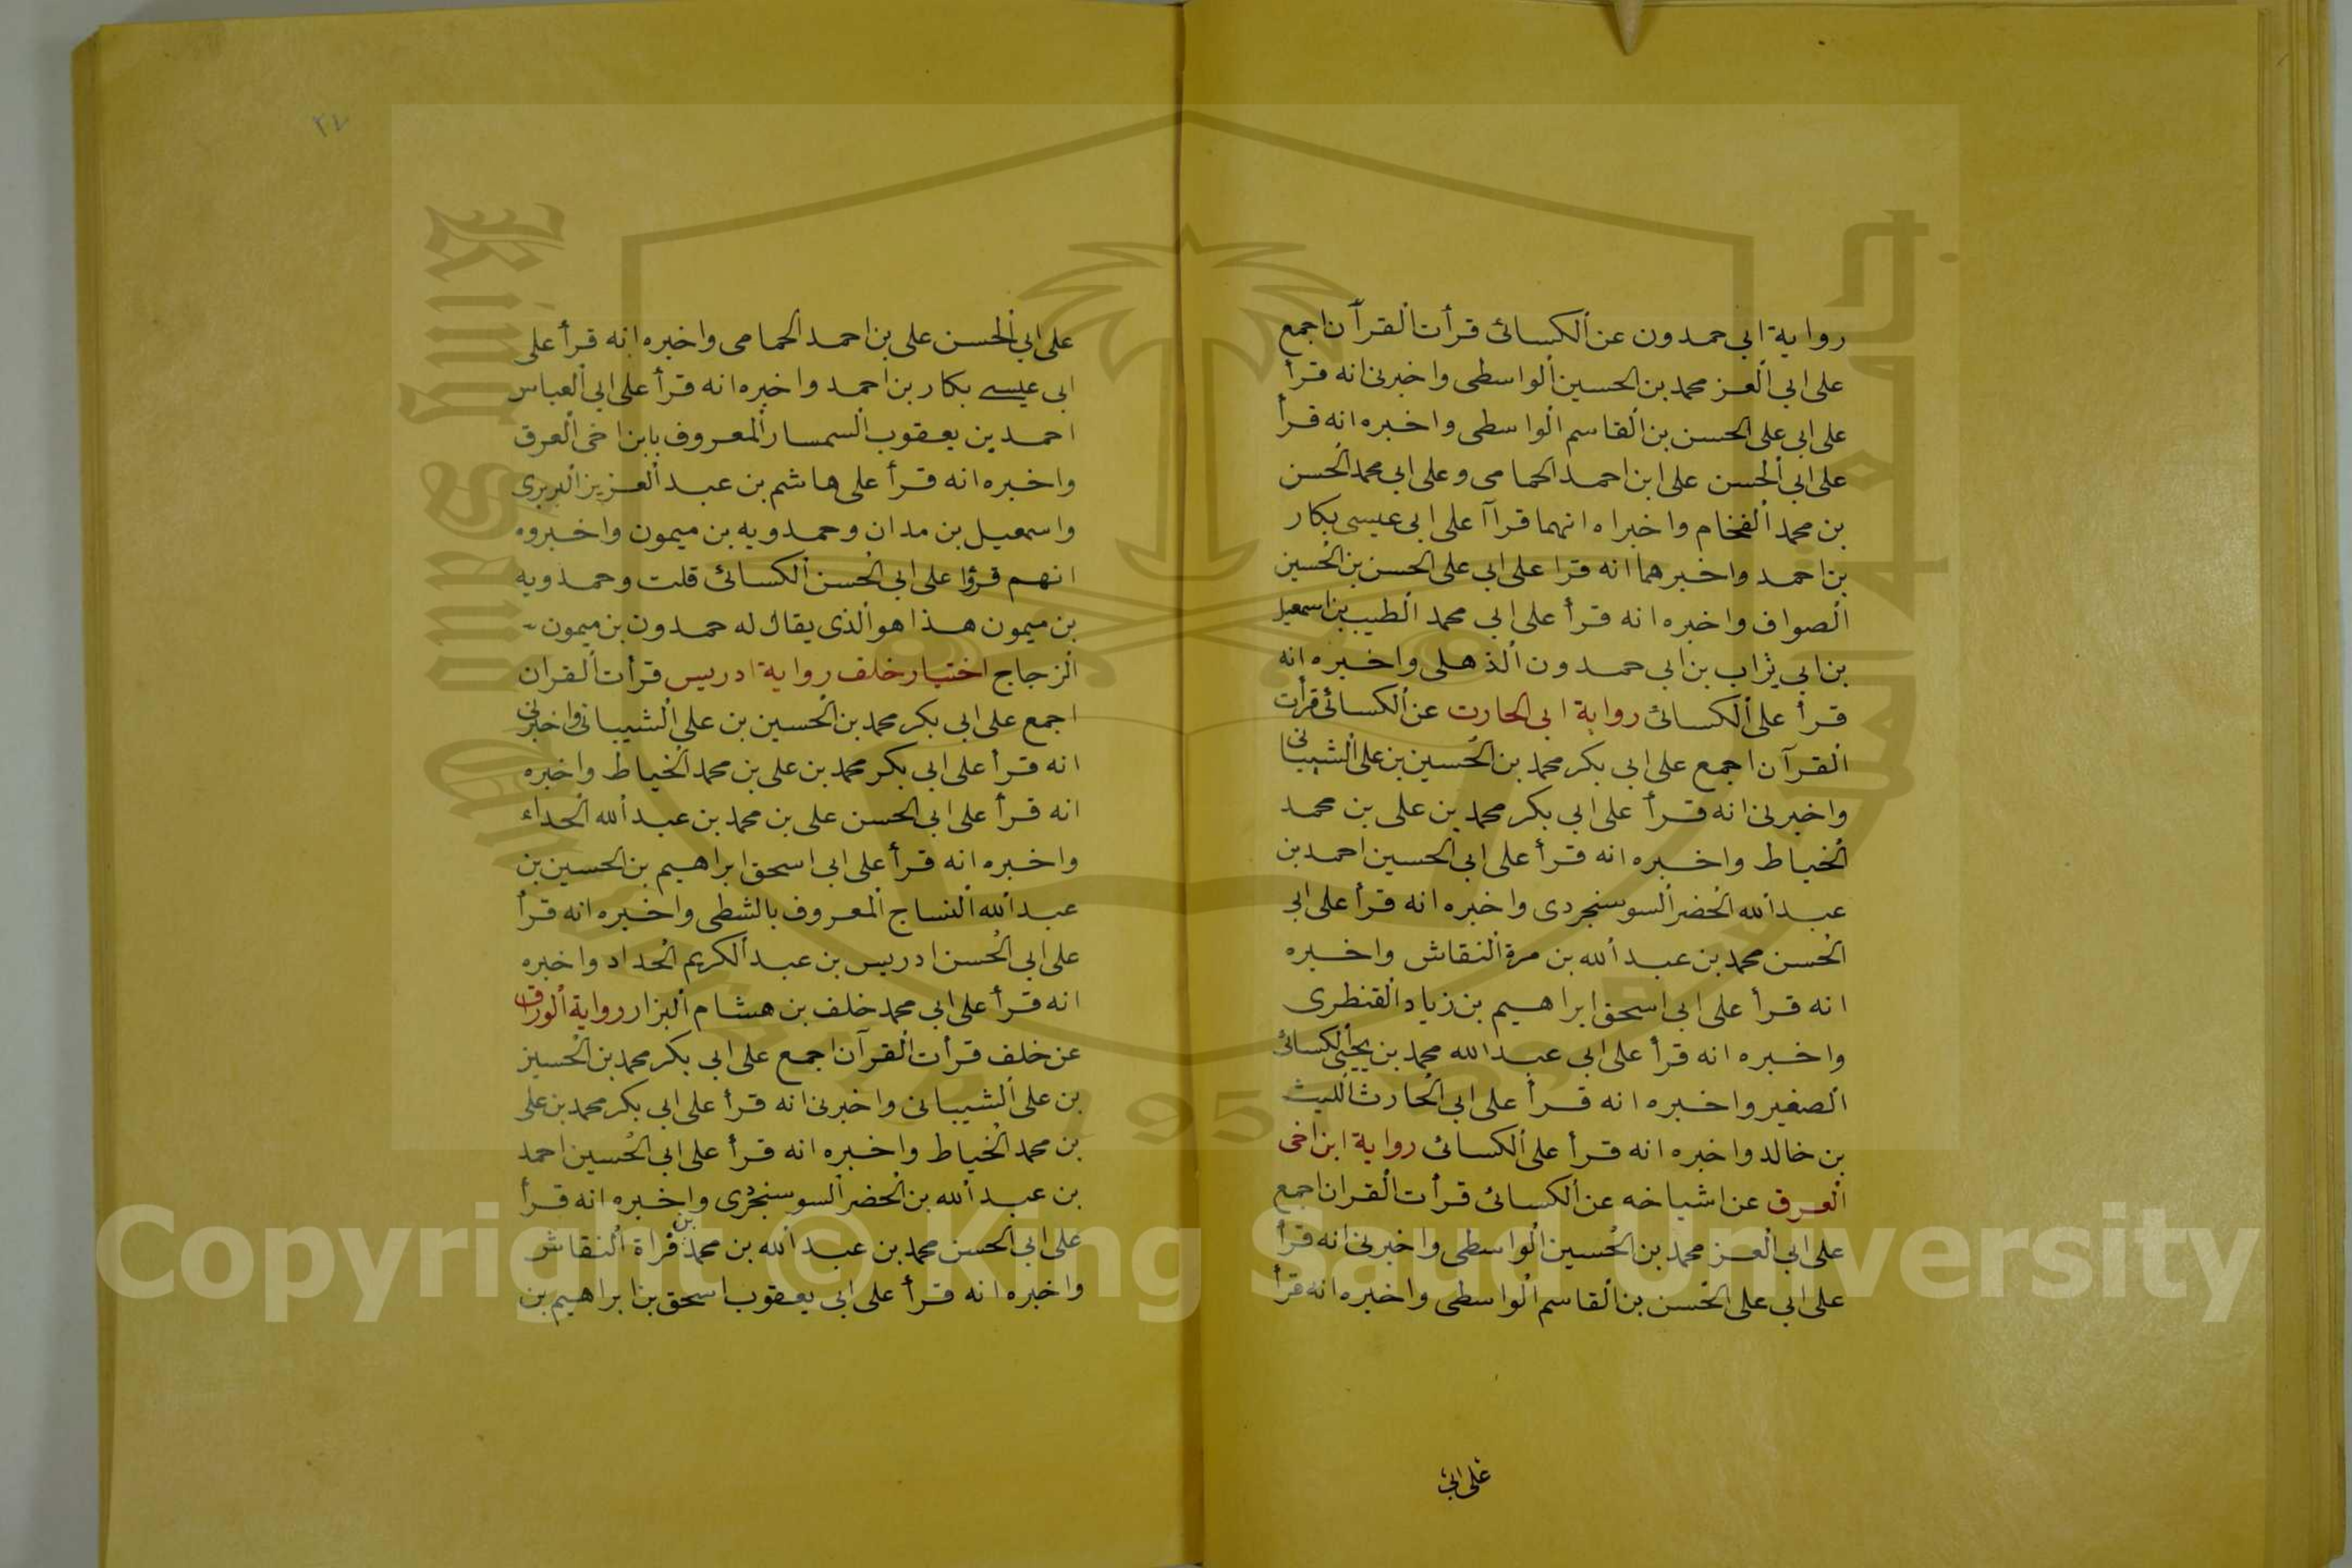 رواية ابى حمدون عن الكسائى قرأت القرآن اجمع
على ابى العز محمد بن الحسين الواسطى واخبرنى انه قرأ
على ابى على الحسن بن القاسم الواسطى واخبره انه قرأ
على ابى الحسن على ابن احمد الحمامى وعلى ابى محمد الحسن
بن محمد الفخام واخبراه انهما قرآا على ابى عيسى بكار
بن احمد واخبرهما انه قرا على ابى على الحسن بن الحسين
الصواف واخبره انه قرأ على ابى محمد الطيب بن اسمعيل
بن ابى تراب بن ابى حمدون الذهلى واخبره انه
قرأ على الكسائى رواية ابى الحارث عن الكسائى قرأت
القرآن اجمع على ابى بكر محمد بن الحسين بن على الشيبانى
واخبرنى انه قرأ على ابى بكر محمد بن على بن محمد
الخياط واخبره انه قرأ على ابى الحسين احمد بن
عبد الله الخضر السوسنجردى واخبره انه قرأ على ابى
الحسن محمد بن عبد الله بن مرة النقاش واخبره
انه قرأ على ابى اسحق ابراهيم بن زياد القنطرى
واخبره انه قرأ على ابى عبد الله محمد بن يحيى الكسائى
الصغير واخبره انه قرأ على ابى الحارث الليث
بن خالد واخبره انه قرأ على الكسائى رواية ابن اخى
العرق عن اشياخه عن الكسائى قرأت القران اجمع
على ابى العز محمد بن الحسين الواسطى واخبرنى انه قرأ
على ابى على الحسن بن القاسم الواسطى واخبره انه قرأ
على ابى
٢٧
على ابى الحسن على بن احمد الحمامى واخبره انه قرأ على
ابى عيسى بكار بن احمد واخبره انه قرأ على ابى العباس
احمد بن يعقوب السمسار المعروف بابن اخى العرق
واخبره انه قرأ على هاشم بن عبد العزيز البربرى
واسمعيل بن مدان وحمدويه بن ميمون واخبروه
انهم قرؤا على ابى الحسن الكسائى قلت وحمدويه
بن ميمون هذا هو الذى يقال له حمدون بن ميمون
الزجاج اختيار خلف رواية ادريس قرأت القران
اجمع على ابى بكر محمد بن الحسين بن على الشيبانى واخبرنى
انه قرأ على ابى بكر محمد بن على بن محمد الخياط واخبره
انه قرأ على ابى الحسن على بن محمد بن عبد الله الحداء
واخبره انه قرأ على ابى اسحق ابراهيم بن الحسين بن
عبد الله النساج المعروف بالشطى واخبره انه قرأ
على ابى الحسن ادريس بن عبد الكريم الحداد واخبره
انه قرأ على ابى محمد خلف بن هشام البزار رواية الوراق
عن خلف قرأت القرآن اجمع على ابى بكر محمد بن الحسين
بن على الشيبانى واخبرنى انه قرأ على ابى بكر محمد بن على
بن محمد الخياط واخبره انه قرأ على ابى الحسين احمد
بن عبد الله بن الخضر السوسنجردى واخبره انه قرأ
على ابى الحسن محمد بن عبد الله بن محمد بن قراة النقاش
واخبره انه قرأ على ابى يعقوب اسحق بن ابراهيم بن
Copyright © King Saud University